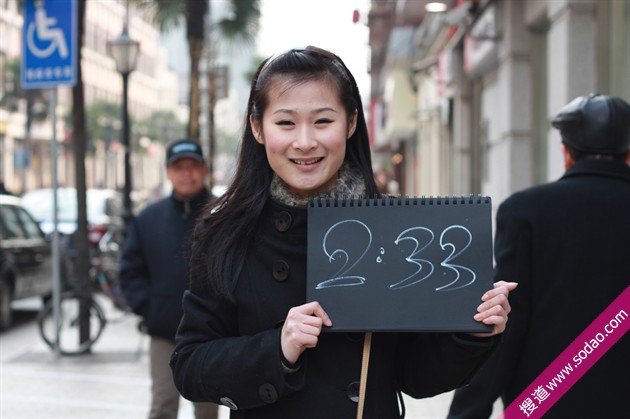 2:33
搜道www.sodao.com